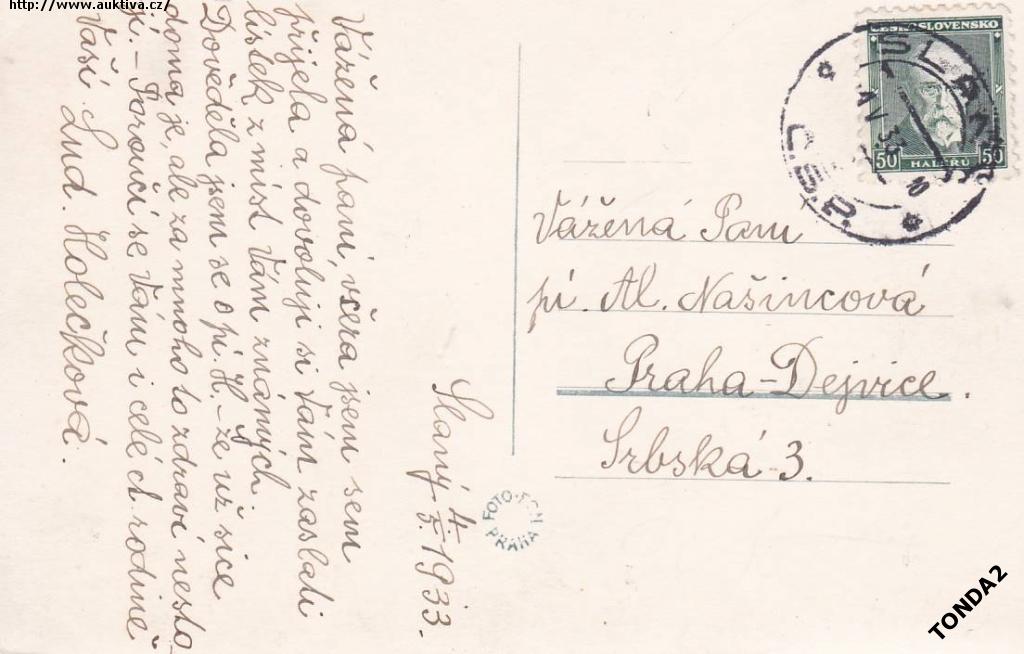 http://www.auktiva.cz/
Slaný 4./5. 1933.
Vážená paní, včera jsem sem
přijela a dovoluji si Vám zaslati
lístek z míst Vám známých.
Dověděla jsem se o pí. H. – že už sice
doma je, ale za mnoho to zdraví nesto-
jí. – Poroučí se Vám i celé ct. rodině
Vaší Lud. Holečková.
ČESKOSLOVENSKO
50 HALÉŘŮ 50
SLANÝ
Č.S.P.
Vážená Paní
pí. Al. Našincová
Praha-Dejvice.
Srbská 3.
FOTO-FON
PRAHA
TONDA2